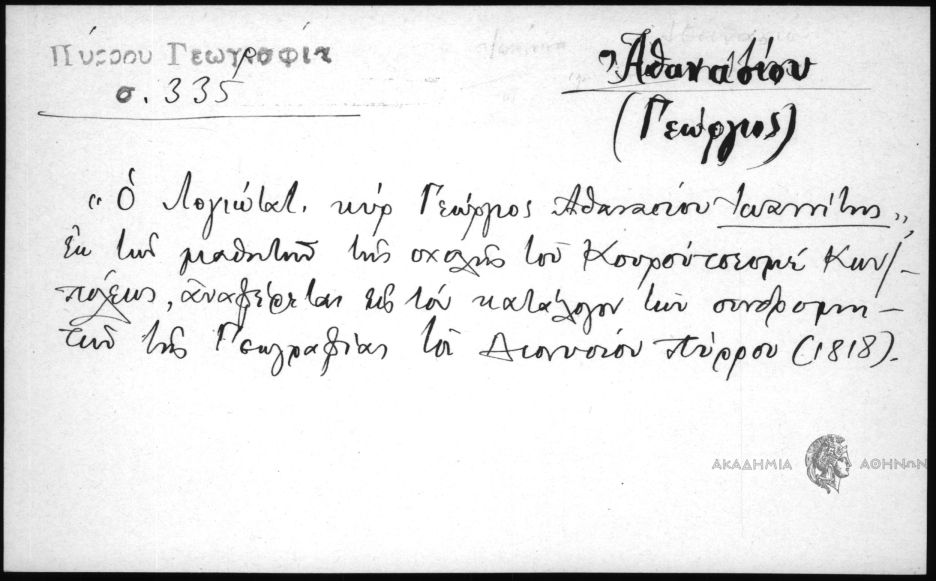 Πύρρου Γεωγραφία
σ. 335
Ἀθανασίου
(Γεώργιος)
"Ὁ λογιώτατ. κὺρ Γεώργιος Ἀθανασίου Ἰωαννίτης"
ἐκ τῶν μαθητῶν τῆς σχολῆς τοῦ Κουρούτσεσμέ Κων/-
πόλεως, ἀναφέρεται εἰς τὸν κατάλογον τῶν συνδρομη-
τῶν τῆς Γεωγραφίας τοῦ Διονυσίου Πύρρου (1818).
ΑΚΑΔΗΜΙΑ ΑΘΗΝΩΝ